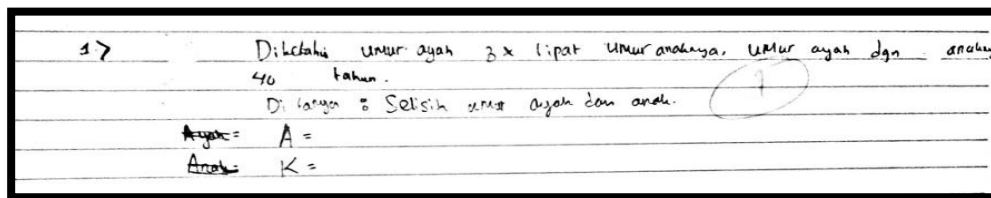 1.> Diketahui umur ayah 3x lipat umur anaknya, umur ayah dgn anakny
40 tahun.
Di tanya : Selisih umur ayah dan anak.
Ayah = A =
Anak = K =